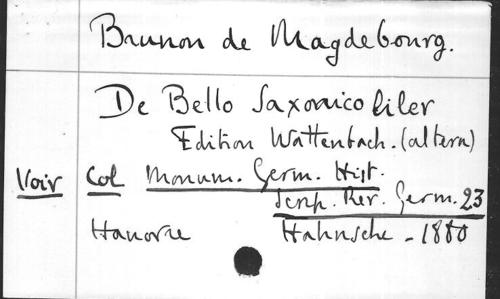 Brunon de Magdebourg.
De Bello Saxonico liber
Edition Wattenbach. (altera)
Voir Col Monum. Germ. Hist.
Scrip. Rer. Germ. 23
Hanovre Hahnsche - 1880